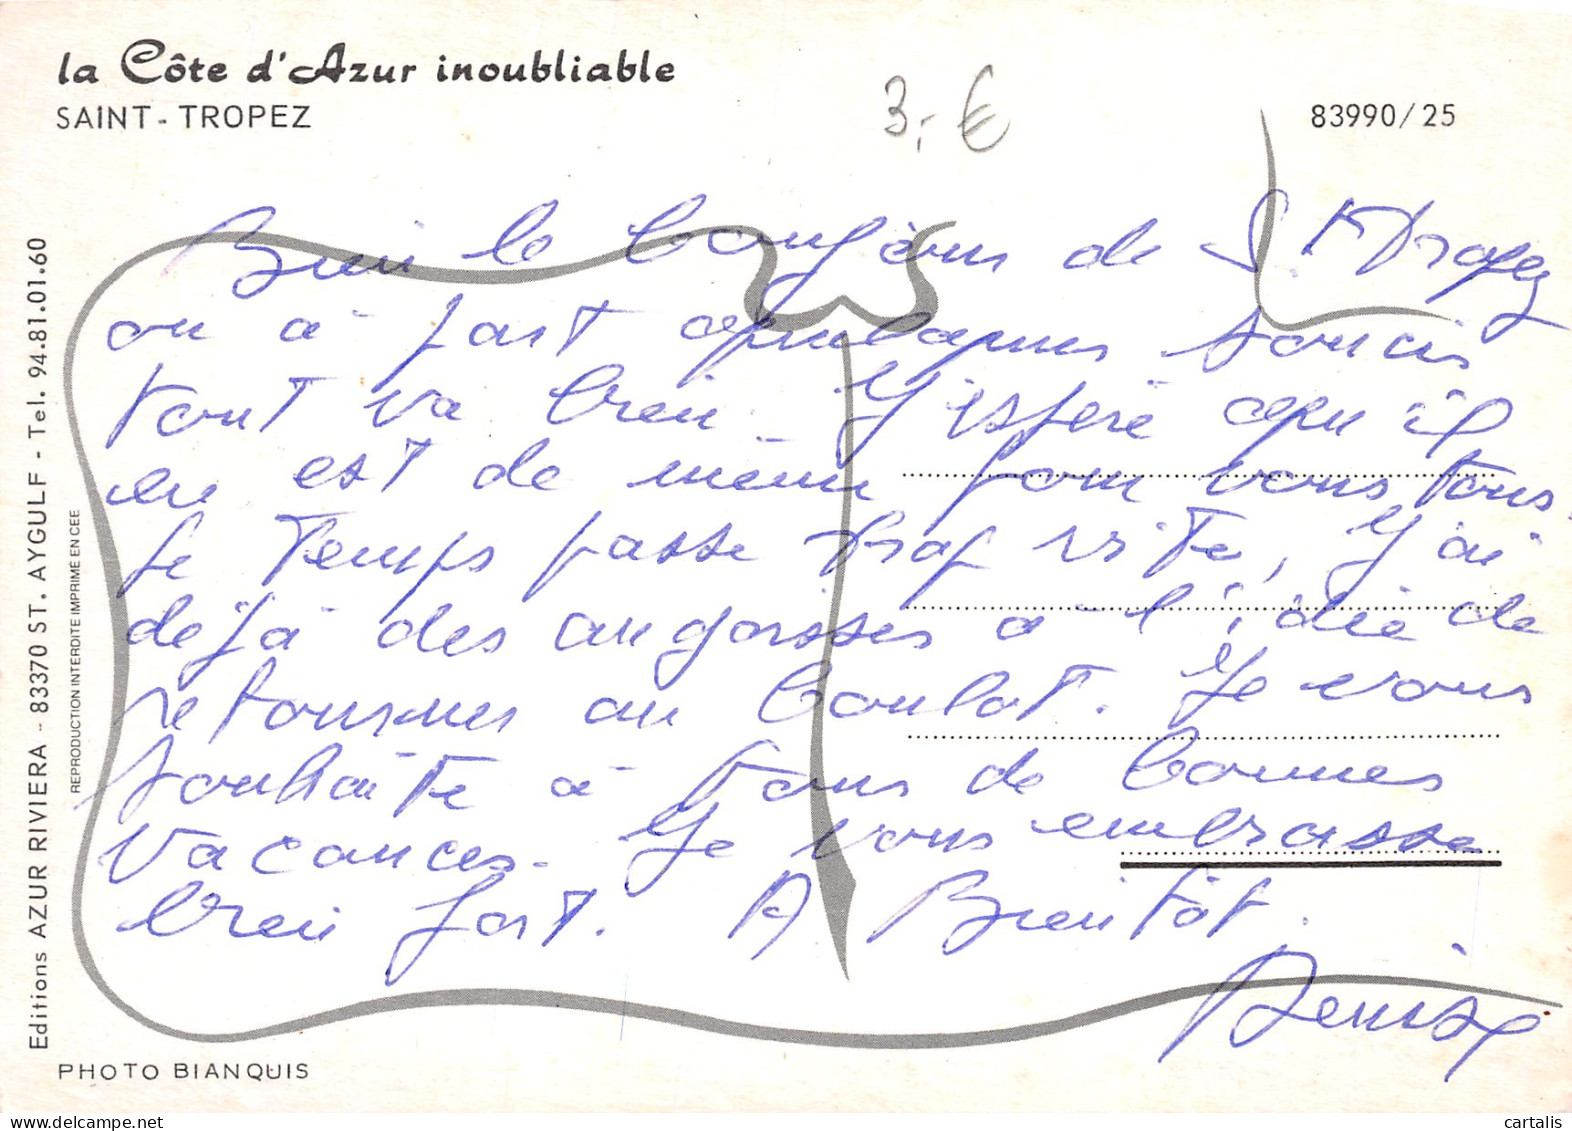 la Côte d'Azur inoubliable
SAINT-TROPEZ
3,- €
83990/25
Bien le bonjour de S T Tropez
ou à part quelques soucis
tout va bien. J'espère qu'il
en est de même pour vous tous.
Le temps passe trop vite, j'ai
déjà des angoisses à l'idée de
retourner au boulot. Je vous
souhaite à tous de bonnes
vacances. Je vous embrasse
bien fort. A Bientôt.
Denise
Editions AZUR RIVIERA - 83370 ST. AYGULF - Tel. 94.81.01.60
REPRODUCTION INTERDITE IMPRIME EN CEE
PHOTO BIANQUIS
cartalis